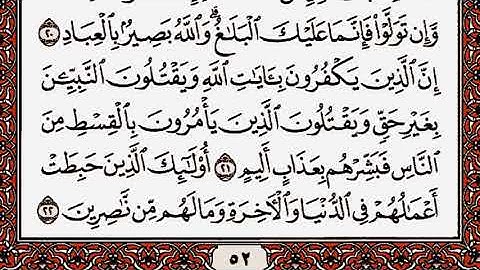 وَّإِن تَوَلَّوْا۟ فَإِنَّمَا عَلَيْكَ ٱلْبَلَـٰغُ ۗ وَٱللَّهُ بَصِيرٌۢ بِٱلْعِبَادِ ٢٠
إِنَّ ٱلَّذِينَ يَكْفُرُونَ بِـَٔايَـٰتِ ٱللَّهِ وَيَقْتُلُونَ ٱلنَّبِيِّـۧنَ
بِغَيْرِ حَقٍّ وَيَقْتُلُونَ ٱلَّذِينَ يَأْمُرُونَ بِٱلْقِسْطِ مِنَ
ٱلنَّاسِ فَبَشِّرْهُم بِعَذَابٍ أَلِيمٍ ٢١ أُو۟لَـٰٓئِكَ ٱلَّذِينَ حَبِطَتْ
أَعْمَـٰلُهُمْ فِى ٱلدُّنْيَا وَٱلْـَٔاخِرَةِ وَمَا لَهُم مِّن نَّـٰصِرِينَ ٢٢
٥٢